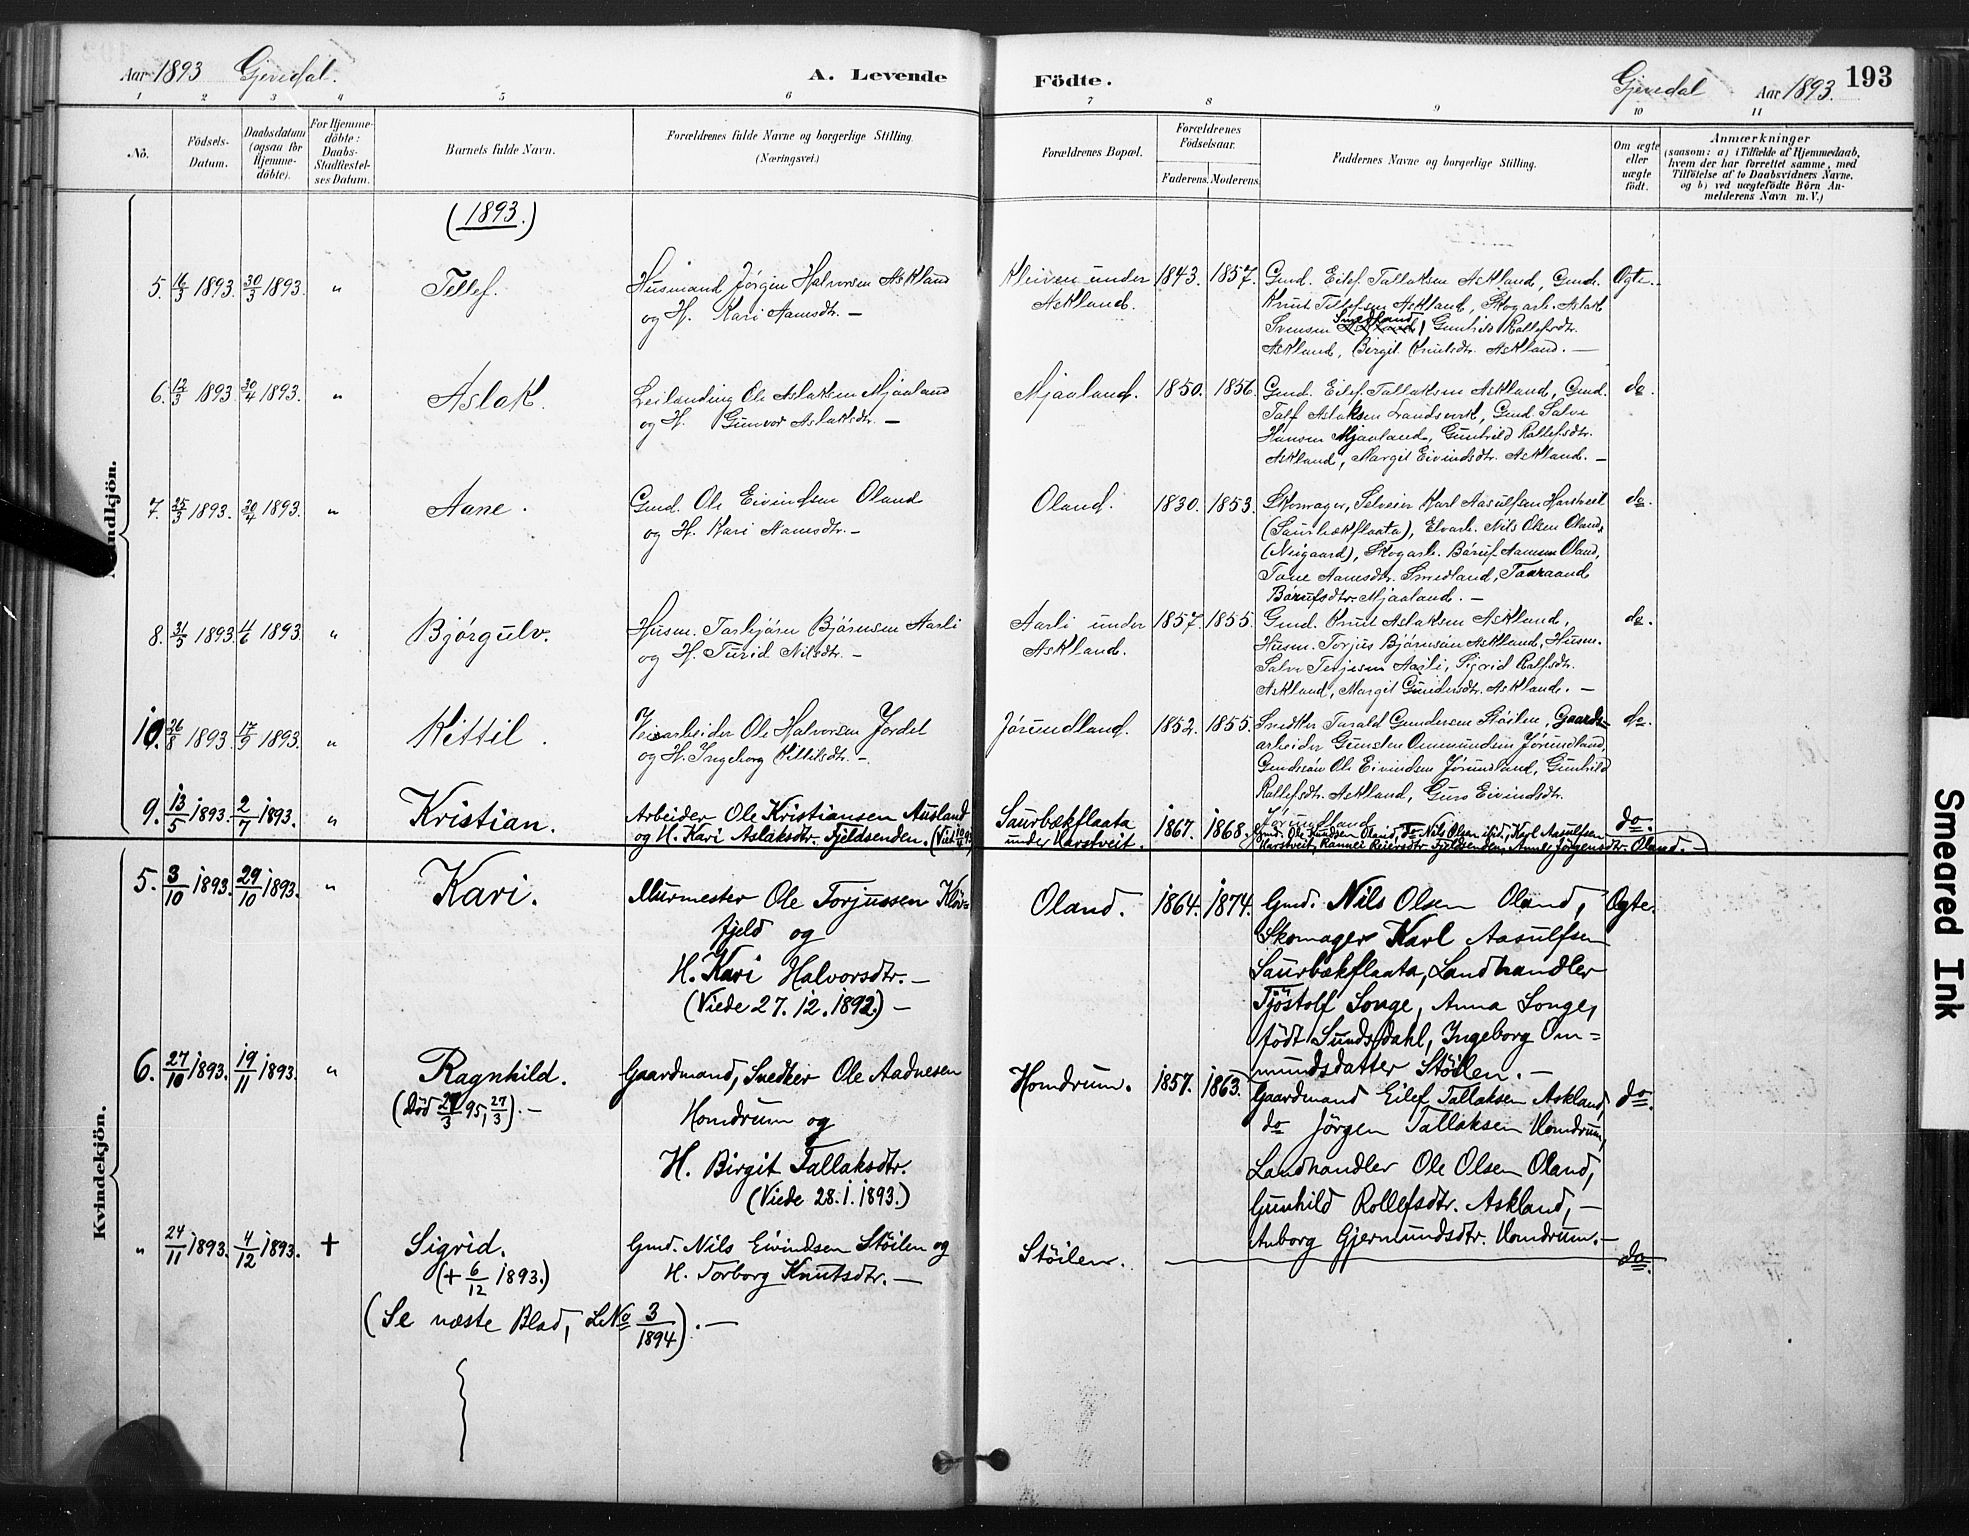 Aar 1893 Gjevedal. A. Levende Födte. Gjevedal Aar 1893. 193
1 2 3 4 5 6 7 8 9 10 11
No.
Födsels-
Datum.
Daabsdatum
(ogsaa for
Hjemme-
döbte).
For Hjemme-
döbte:
Daabs-
Stadfæstel-
ses Datum.
Barnets fulde Navn.
Forældrenes fulde Navne og borgerlige Stilling.
(Næringsvei.)
Forældrenes Bopæl.
Forældrenes
Födselsaar.
Faderens. Moderens.
Faddernes Navne og borgerlige Stilling.
Om ægte
eller
uægte
födt.
Anmærkninger
(saasom: a) i Tilfælde af Hjemmedaab,
hvem der har forrettet samme, med
Tilföielse af to Daabsvidners Navne.
og b) ved uægtefödte Börn An-
melderens Navn m. V.)
Mandkjön.
(1893.)
5. 16/3 1893. 30/3 1893. " Tellef.
Husmand Jörgen Halvorsen Askland
og H. Kari Aamsdtr. –
Kleiven under
Askland.
1843. 1857.
Gmd. Eilef Tallaksen Askland, Gmd.
Knut Tellefsen Askland, Skogarb. Aslak
Svensen Smedland, Gunhild Rollefsdtr.
Askland, Birgit Knutsdtr. Askland. –
Ægte.
6. 12/3 1893. 30/4 1893. " Aslak.
Leilænding Ole Aslaksen Mjaaland
og H. Gunvor Aslaksdtr. –
Mjaaland. 1850. 1856.
Gmd. Eilef Tallaksen Askland, Gmd.
Talf Aslaksen Landsverk, Gmd. Salve
Hansen Mjaaland, Gunhild Rollefsdtr.
Askland, Margit Eivindsdtr. Askland. –
do.
7. 25/3 1893. 30/4 1893. " Aane.
Gmd. Ole Eivindsen Oland
og H. Kari Aamsdtr. –
Oland. 1830. 1853.
Skomager, Selveier Karl Aasulfsen Harstveit
(Saurbækflaata), Elvarb. Nils Olsen Oland,
(Neigaard), Skogarb. Börüf Aamsen Oland,
Tone Aamesdtr. Smedland, Taaraand
Börufsdtr. Mjaaland. –
do.
8. 31/5 1893. 11/6 1893. " Bjórgulv.
Husm. Tarbjörn Bjórnsen Aarli
og H. Turid Nilsdtr. –
Aarli under
Askland.
1857. 1855.
Gmd. Knut Aslaksen Askland,
Husm. Torjus Bjórnsen Askland, Husm.
Salve Terjesen Aarli, Sigrid Ralfsdtr.
Askland, Margit Gundersdtr. Askland. –
do.
10. 26/8 1893 17/9 1893. " Kittil.
Veiarbeider Ole Halvorsen Jordet
og H. Ingeborg Kittilsdtr. –
Jórundland. 1852. 1855.
Snedker Tarald Gundersen Stóilen, Gaards-
arbeider Gunsten Ommundsen Jórundland,
Gmdssón Ole Eivindsen Jórundland, Gunhild
Rollefsdtr. Askland, Guro Eivindsdtr.
Jórundland
do.
9. 13/5 1893. 2/7 1893. " Kristian.
Arbeider Ole Kristiansen Ausland
og H. Kari Aslaksdtr. Fjeldsenden.
Saurbækflaata
under Harstveit.
1867. 1868.
Gmd. Ole Knudsen Oland, do Nils Olsen ibid., Karl Aasulfsen
Harstveit, Rannei Reiersdtr. Fjeldsenden, Anne Jørgensdtr. Oland.
do.
Kvindekjön.
5. 3/10 1893. 29/10 1893. " Kari.
Murmester Ole Torjussen Klöv-
fjeld og
H. Kari Halvorsdtr. –
(Viede 27. 12. 1892.) –
Oland. 1864. 1874.
Gmd. Nils Olsen Oland,
Skomager Karl Aasulfsen
Saurbækflaata, Landhandler
Tjöstolf Songe, Anna Songe,
född Sundsdahl, Ingeborg Om-
mundsdatter Stöilen. –
Ægte.
6. 27/10 1893. 19/11 1893. " Ragnhild.
(Död 27/3 95, 27/3). –
Gaardmand, Snedker Ole Aadnesen
Homdrum og
H. Birgit Tallaksdtr.
(Viede 28. 1. 1893.)
Homdrum. 1857. 1863.
Gaardmand Eilef Tallaksen Askland,
do Jörgen Tallaksen Homdrum,
Landhandler Ole Olsen Oland,
Gunhild Rollefsdtr. Askland, –
Anborg Gjermundsdtr. Homdrum. –
do.
" 24/11 1893. 4/12 1893. + Sigrid.
(+ 6/12 1893.)
Gmd. Nils Eivindsen Stöilen og
H. Torborg Knutsdtr. –
Stöilen.
do.
(Se næste Blad, L.No 3/1894). –
Smeared Ink